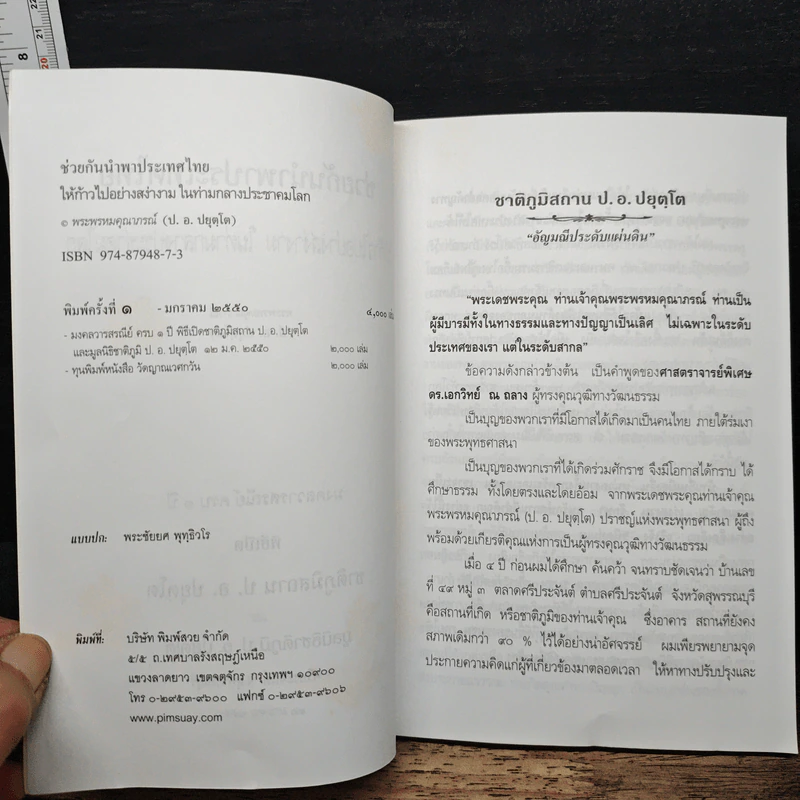 8
21
20
ช่วยกันนำพาประเทศไทย
ให้ก้าวไปอย่างสง่างาม ในท่ามกลางประชาคมโลก
© พระพรหมคุณาภรณ์ (ป. อ. ปยุตฺโต)
ISBN 974-87948-7-3
พิมพ์ครั้งที่ ๑ - มกราคม ๒๕๕๐ ๔,๐๐๐ เล่ม
- มงคลวารสรณีย์ ครบ ๑ ปี พิธีเปิดชาติภูมิสถาน ป. อ. ปยุตฺโต
และมูลนิธิชาติภูมิ ป. อ. ปยุตฺโต ๑๒ ม.ค. ๒๕๕๐ ๒,๐๐๐ เล่ม
- ทุนพิมพ์หนังสือ วัดญาณเวศกวัน ๒,๐๐๐ เล่ม
แบบปก: พระชัยยศ พุทฺธิวโร
พิมพ์ที่: บริษัท พิมพ์สวย จำกัด
๕/๕ ถ.เทศบาลรังสฤษฎ์เหนือ
แขวงลาดยาว เขตจตุจักร กรุงเทพฯ ๑๐๙๐๐
โทร ๐-๒๙๕๓-๙๖๐๐ แฟกซ์ ๐-๒๙๕๓-๙๖๐๖
www.pimsuay.com
ชาติภูมิสถาน ป. อ. ปยุตฺโต
“อัญมณีประดับแผ่นดิน”
“พระเดชพระคุณ ท่านเจ้าคุณพระพรหมคุณาภรณ์ ท่านเป็น
ผู้มีบารมีทั้งในทางธรรมและทางปัญญาเป็นเลิศ ไม่เฉพาะในระดับ
ประเทศของเรา แต่ในระดับสากล”
ข้อความดังกล่าวข้างต้น เป็นคำพูดของศาสตราจารย์พิเศษ
ดร.เอกวิทย์ ณ ถลาง ผู้ทรงคุณวุฒิทางวัฒนธรรม
เป็นบุญของพวกเราที่มีโอกาสได้เกิดมาเป็นคนไทย ภายใต้ร่มเงา
ของพระพุทธศาสนา
เป็นบุญของพวกเราที่ได้เกิดร่วมศักราช จึงมีโอกาสได้กราบ ได้
ศึกษาธรรม ทั้งโดยตรงและโดยอ้อม จากพระเดชพระคุณท่านเจ้าคุณ
พระพรหมคุณาภรณ์ (ป. อ. ปยุตฺโต) ปราชญ์แห่งพระพุทธศาสนา ผู้ถึง
พร้อมด้วยเกียรติคุณแห่งการเป็นผู้ทรงคุณวุฒิทางวัฒนธรรม
เมื่อ ๔ ปี ก่อนผมได้ศึกษา ค้นคว้า จนทราบชัดเจนว่า บ้านเลข
ที่ ๔๙ หมู่ ๓ ตลาดศรีประจันต์ ตำบลศรีประจันต์ จังหวัดสุพรรณบุรี
คือสถานที่เกิด หรือชาติภูมิของท่านเจ้าคุณ ซึ่งอาคาร สถานที่ยังคง
สภาพเดิมกว่า ๙๐ % ไว้ได้อย่างน่าอัศจรรย์ ผมเพียรพยายามจุด
ประกายความคิดแก่ผู้ที่เกี่ยวข้องมาตลอดเวลา ให้หาทางปรับปรุงและ